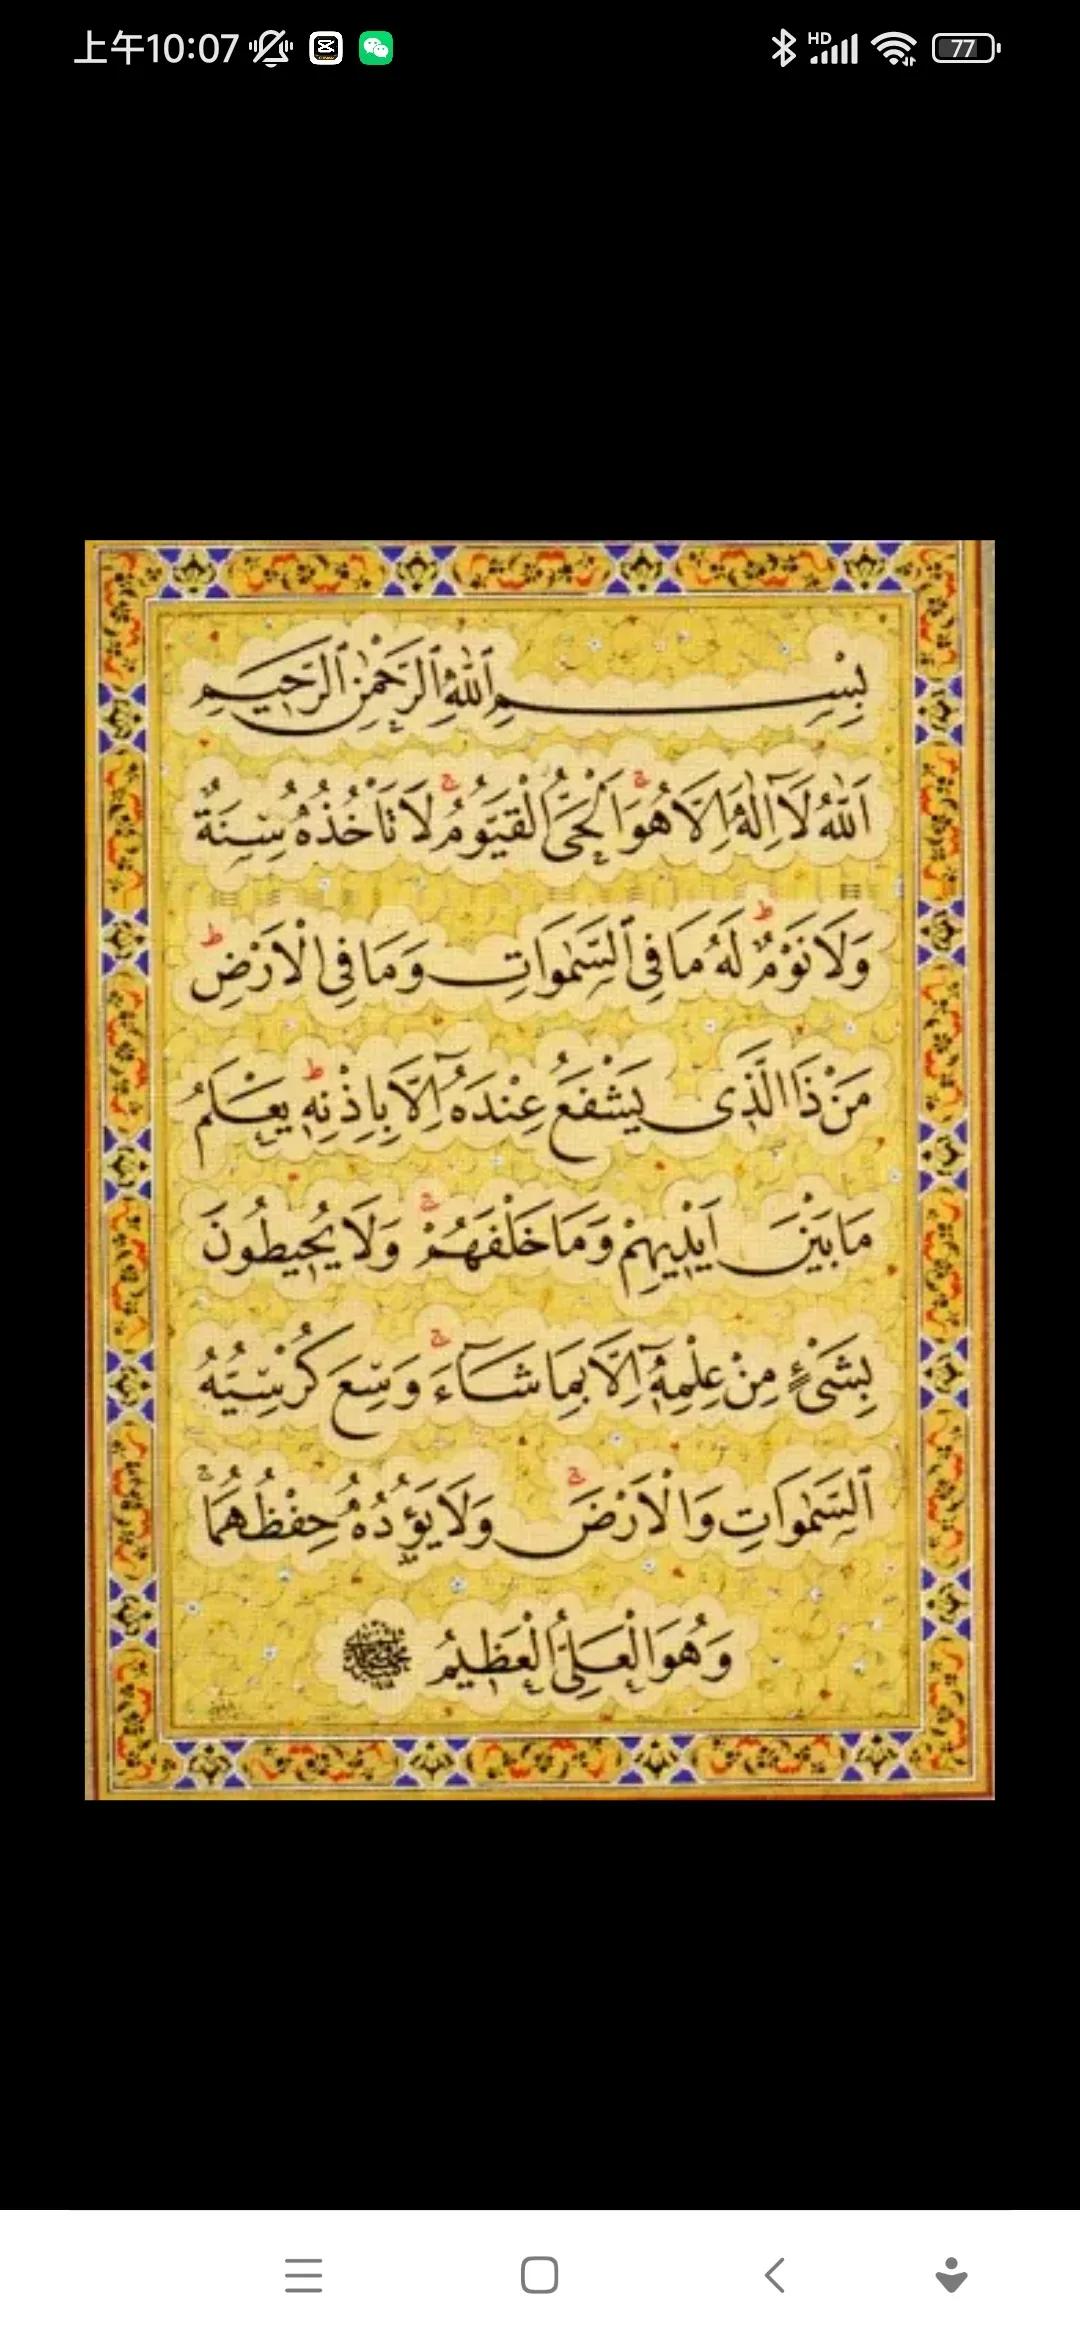 上午10:07
HD
77
بِسْمِ ٱللّٰهِ ٱلرَّحْمٰنِ ٱلرَّحِيمِ
اَللّٰهُ لَآ اِلٰهَ اِلَّا هُوَ ۚ اَلْحَيُّ الْقَيُّومُ ۚ لَا تَأْخُذُهُ سِنَةٌ
وَلَا نَوْمٌ ۜ لَهُ مَا فِي ٱلسَّمٰوَاتِ وَمَا فِي الْاَرْضِ ۜ
مَنْ ذَا الَّذِى يَشْفَعُ عِنْدَهُٓ اِلَّا بِاِذْنِهٖ ۜ يَعْلَمُ
مَا بَيْنَ اَيْدِيهِمْ وَمَا خَلْفَهُمْ ۚ وَلَا يُحِيطُونَ
بِشَىْءٍ مِنْ عِلْمِهٖٓ اِلَّا بِمَا شَآءَ ۚ وَسِعَ كُرْسِيُّهُ
ٱلسَّمٰوَاتِ وَالْاَرْضَ ۚ وَلَا يَؤُدُهُ حِفْظُهُمَا ۚ
وَهُوَ الْعَلِيُّ الْعَظِيمُ